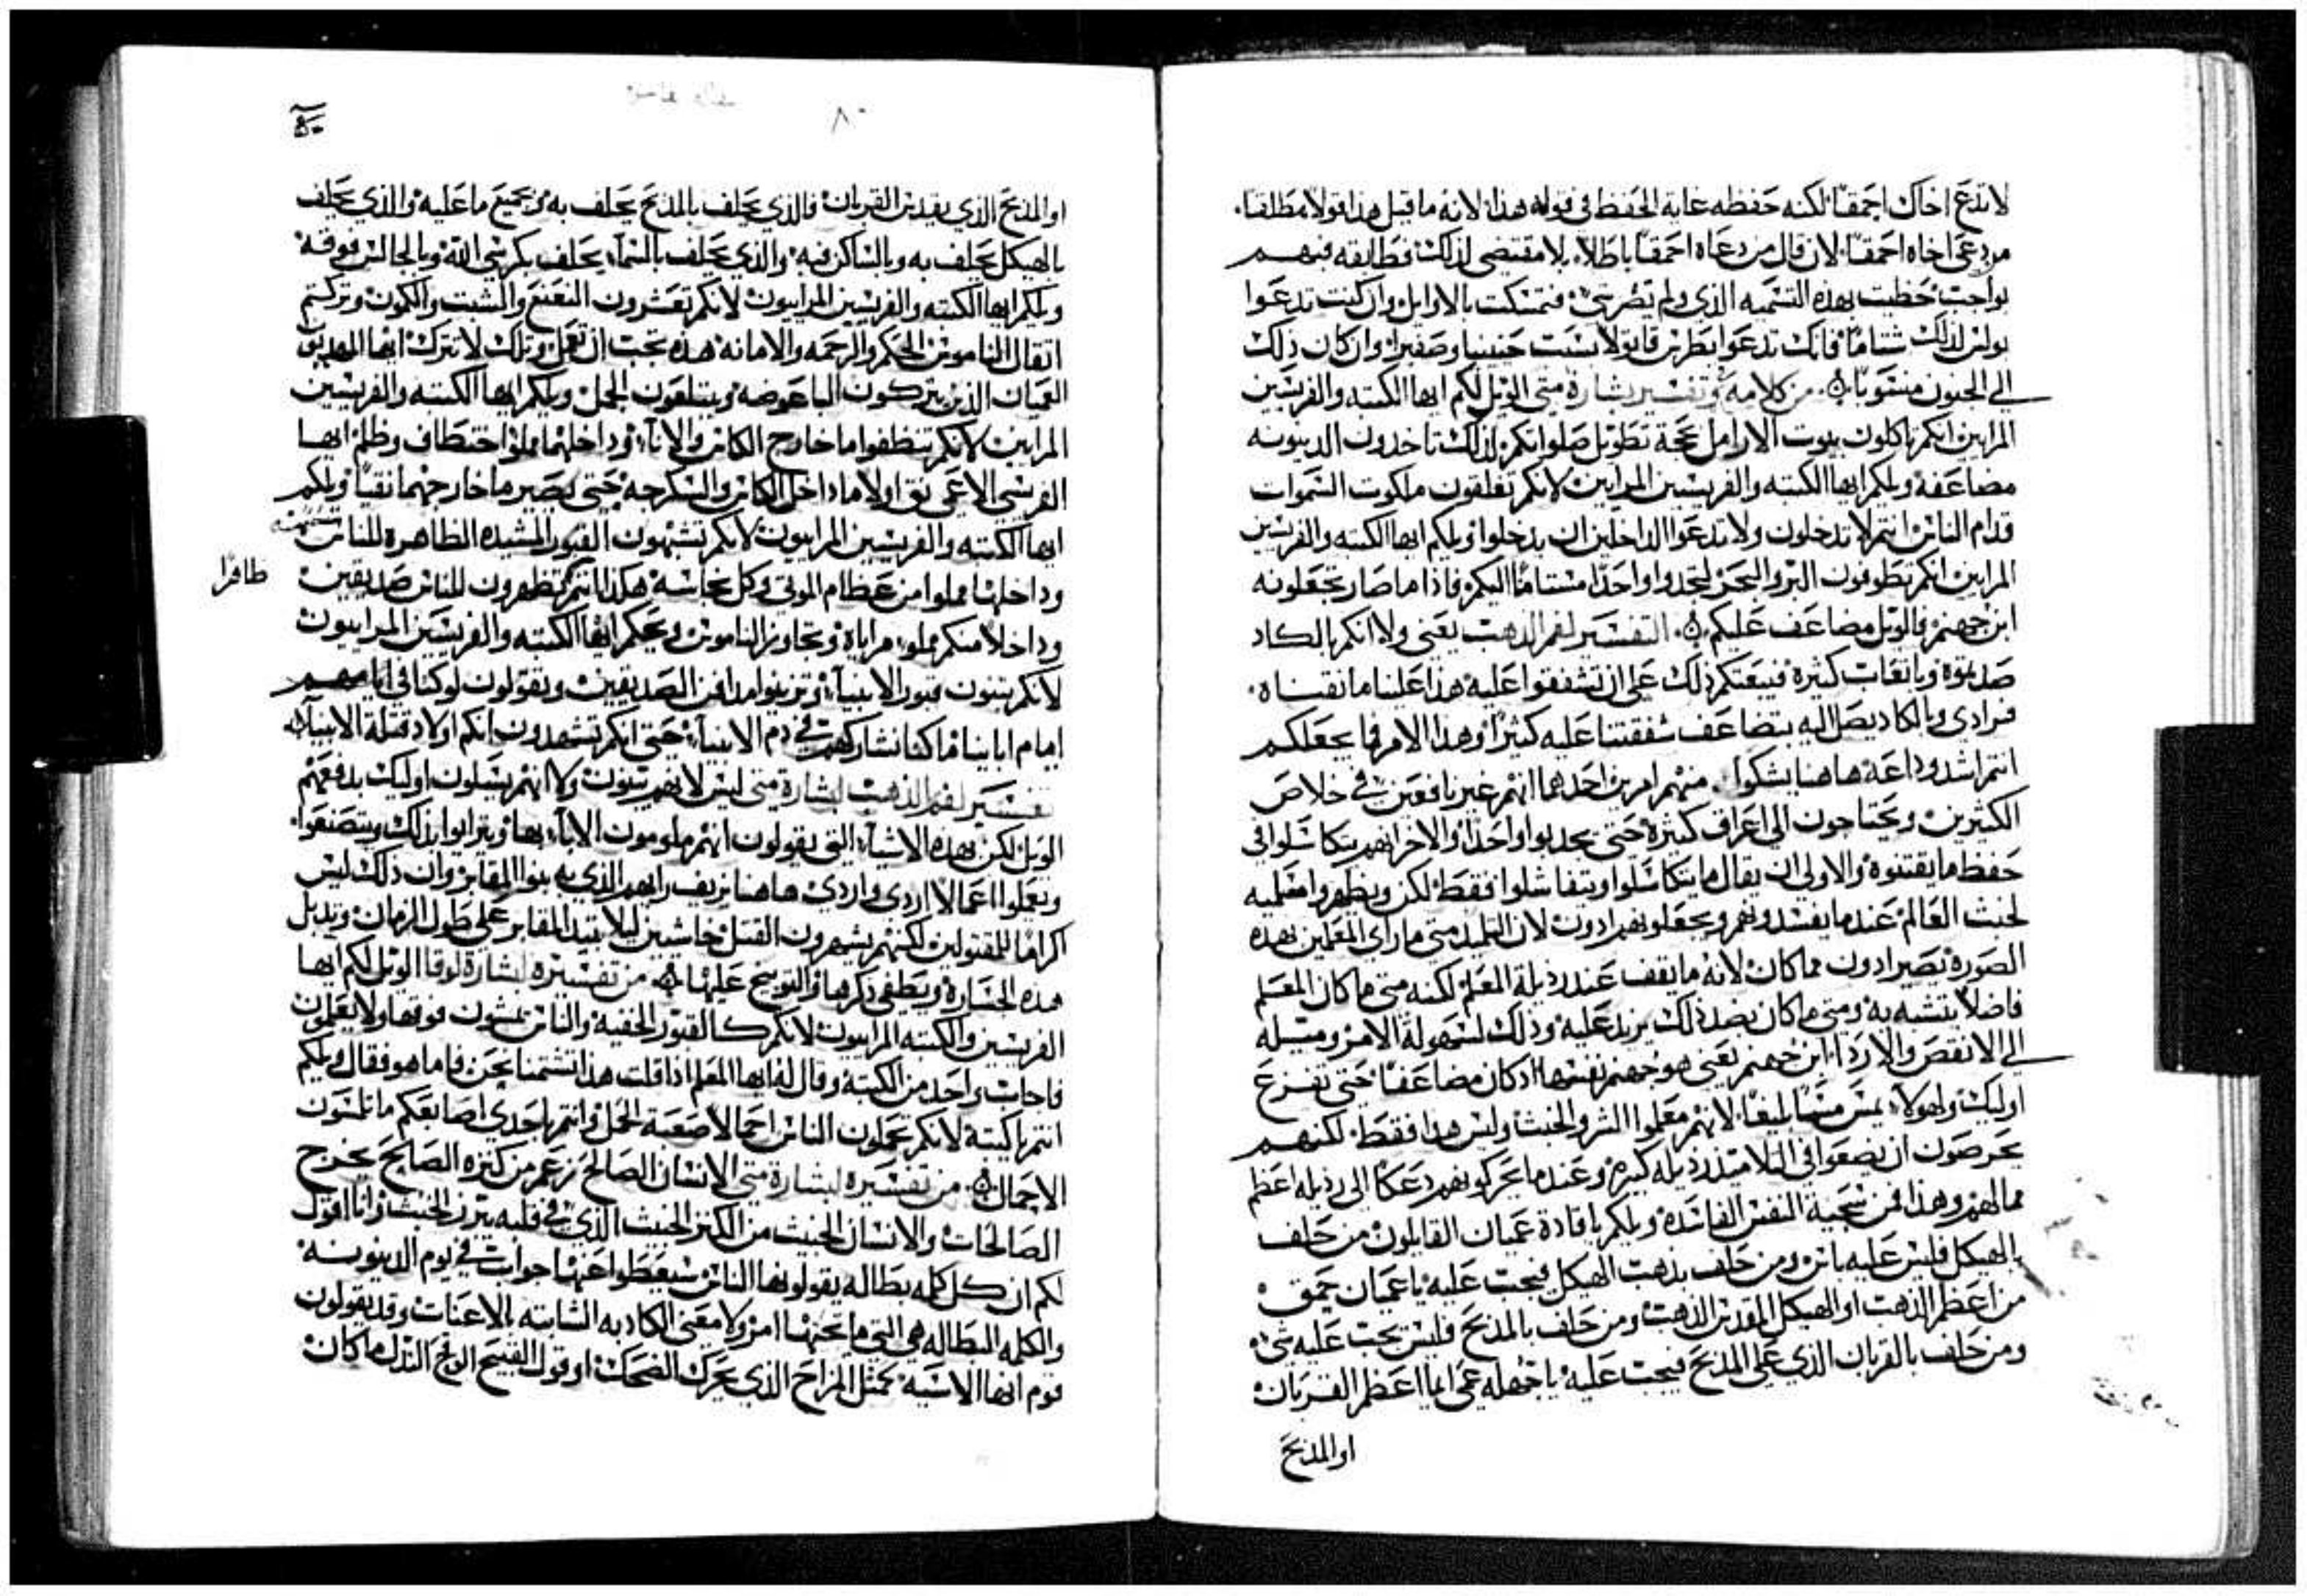 لا تدع اخاك احمقا لكنه حفظه غاية الحفظ في قوله هذا لانه ما قيل هذا قولا مطلقا
من دعى اخاه احمقا لان قال من دعاه احمقا باطلا بلا مقتضى لذلك فطابقه فهم
بواجب حظيت بهذه التسميه الذي ولم تضر شي فتمسكت بالاوايل وان كنت تدعوا
بولس لذلك شتاما فانك تدعوا بطرس قاتولا لست حنينيا وصفيرا وان كان ذلك
الى الجنون منسوبا من كلامه وتفسير بشارة متى الويل لكم ايها الكتبه والفريسين
المراين انكم تاكلون بيوت الارامل بحجة تطويل صلواتكم لذلك تاخذون الدينونه
مضاعفة ويلكم ايها الكتبه والفريسين المرايين لانكم تغلقون ملكوت السموات
قدام الناس انتم لا تدخلون ولا تدعوا الداخلين ان يدخلوا ويلكم ايها الكتبه والفريسين
المراين انكم تطوفون البر والبحر لتجدوا واحدا مستامنا اليكم فاذا ما صار تجعلونه
ابن جهنم فالويل مضاعف عليكم التفسير لفم الذهب يعني ولا انكم بالكاد
صدتموه وباتعاب كثيرة فيبعثكم ذلك على ان تشفقوا عليه هذا علينا ما نقتناه
فرادى وبالكاد يصل اليه يتضاعف شفقتنا عليه كثيرا وهذا الامر فما يجعلكم
انتم اشد وداعة هاهنا يشكوا منهم امرين احدهما انهم غير نافعين في خلاص
الكثيرين ويحتاجون الى اعراف كثيرة حتى يجدبوا واحدا والاخر انهم يتكاسلوا في
حفظ ما يقتنوه والاولى ان يقال ما يتكاسلوا ويتفاشلوا فقط لكن ويظهروا معلميه
لخبث العالم عندما يفسدونهم ويجعلونهم ادون لان التلميد متى ما راى المعلمين بهذه
الصورة تصير ادون مما كان لانه ما يقف عند رذيلة المعلم لكنه متى ما كان المعلم
فاضلا يتشبه به ومتى ما كان بضد ذلك يزيد عليه وذلك لسهولة الامر وميله
الى الانقص والاردا ابن جهنم يعني هو جهنم نفسها اذ كان مضاعفا حتى تفزع
اوليك ولهولا يمس مسا بليغا لانهم معلموا الشر والخبث وليس هذا فقط لكنهم
يحرصون ان يضعوا في التلاميذ رذيله كبيرة وعندما يحركونهم دعكا الى رذيله اعظم
مما لهم وهذا فمن سجية النفس الفاسدة ويلكم يا قادة عميان القايلون من حلف
بالهيكل فليس عليه باس ومن حلف بذهب الهيكل فيجب عليه يا عميان حمق
من اعظم الذهب او الهيكل المقدس الذهب ومن حلف بالمذبح فليس يجب عليه شي
ومن حلف بالقربان الذي على المذبح فيجب عليه يا جهله عمى ايما اعظم القربان
او المذبح
٨٠
او المذبح الذي يقدس القربان فالذي يحلف بالمذبح يحلف به وبجميع ما عليه والذي يحلف
بالهيكل يحلف به وبالساكن فيه والذي يحلف بالسما يحلف بكرسي الله وبالجالس فوقه
ويلكم ايها الكتبه والفريسين المراييون لانكم تعشرون النعنع والشبت والكمون وتركتم
اثقال الناموس الحكم والرحمه والامانه هذه يجب ان تعمل وتلك لا تترك ايها المهديون
العميان الذين يتركون الباعوضه ويبتلعون الجمل ويلكم ايها الكتبه والفريسين
المرايين لانكم تنظفوا ما خارج الكاس والانا وداخلهما مملوا اختطاف وظلم ايها
الفريسي الاعمى نق اولا ما داخل الكاس والسكرجه حتى يصير ما خارجهما نقيا ويلكم
ايها الكتبه والفريسين المراييون لانكم تشبهون القبور المشيده الظاهرة للناس
وداخلها مملوا من عظام الموتى وكل نجاسه هكذا انتم تظهرون للناس صديقين
وداخلا منكم مملو مراياة وتجاوز الناموس ويحكم ايها الكتبه والفريسين المراييون
لانكم تبنون قبور الانبيا وتزينوا مدافن الصديقين وتقولون لو كنا في ايامهم
ايام اباينا ما كنا نشاركهم في دم الانبيا حتى انكم تشهدون انكم اولاد قتلة الانبيا
تفسير لفم الذهب لبشارة متى ليس لانهم يبنون ولا انهم يسبلون اوليك بدفعهم
الويل لكن بهذه الاشيا التي يقولون انهم ملومون الابا بها ويترايوا بذلك ويتصنعوا
ويعملوا اعمالا اردى واردى هاهنا يزيف رايهم الذي به بنوا المقابر وان ذلك ليس
اكراما للمقتولين لكنهم يشهرون القتل خاشيين ليلا تبيد المقابر على طول الزمان وتدبل
هذه الجسارة ويطفى ذكرها والتوبيخ عليها من تفسيره لبشارة لوقا الويل لكم ايها
الفريسين والكتبه المراييون لانكم كالقبور الخفية والناس يمشون فوقها ولا يعلمون
فاجاب واحد من الكتبة وقال له ايها المعلم اذا قلت هذا تشتمنا نحن فاما هو فقال ويلكم
انتم يا كتبة لانكم تحملون الناس احمالا صعبة الحمل وانتم باحدى اصابعكم ما تلمسون
الاحمال من تفسيره لبشارة متى الانسان الصالح زعم من كنزه الصالح يخرج
الصالحات والانسان الخبيث من الكنز الخبيث الذي في قلبه يبرز الخبيث وانا اقول
لكم ان كل كلمه بطاله يقولونها الناس سيعطوا عنها جواب في يوم الدينونه
والكلمه البطاله هي التي ما تحتها امر ولا معنى الكاذبه الشابته بالاعنات وقد يقولون
قوم انها الاشيه كمثل المزاح الذي يحرك الضحك او قول القبيح الوقح النذل ما كان
ظافرا